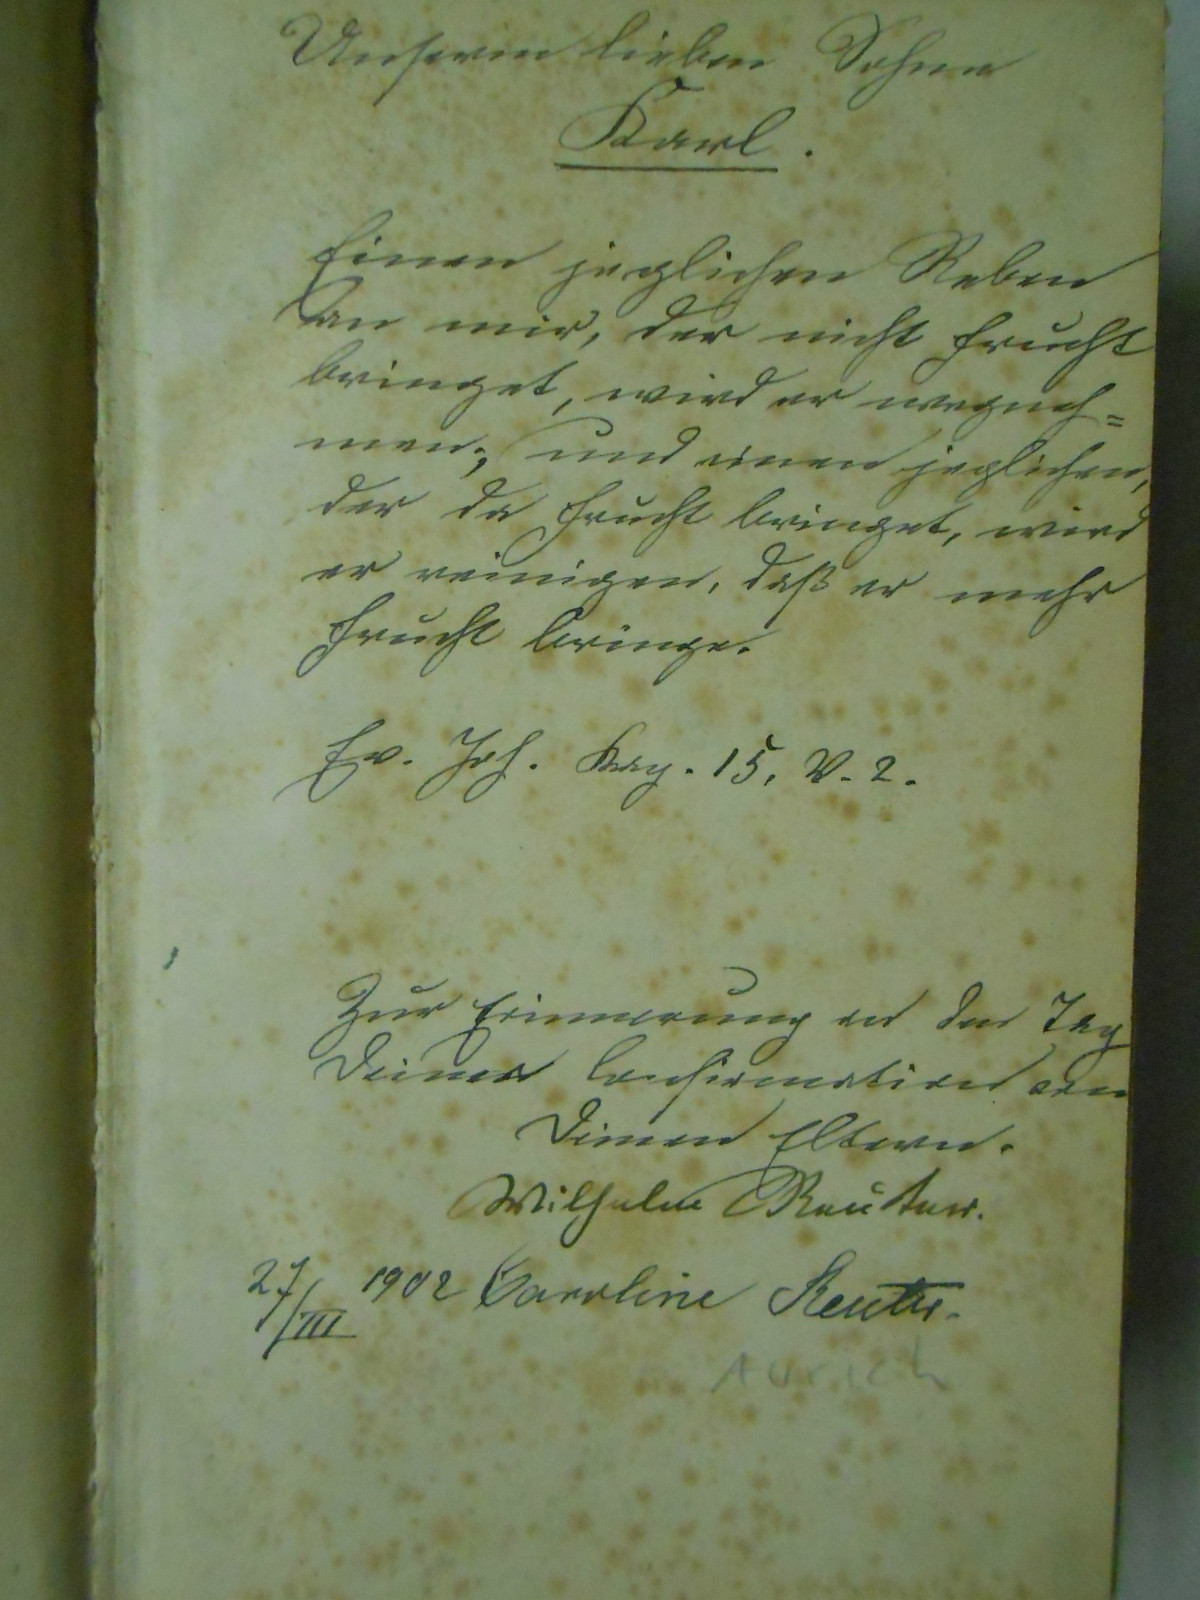 Unserm lieben Sohne
Karl.
Einen jeglichen Reben
an mir, der nicht Frucht
bringet, wird er wegneh=
men; und einen jeglichen,
der da Frucht bringet, wird
er reinigen, daß er mehr
Frucht bringe.
Ev. Joh. Kap. 15, V. 2.
Zur Erinnerung an den Tag
Deiner Confirmation von
Deinen Eltern.
Wilhelm Reuter.
27/III 1902 Caroline Reuter.
Aurich